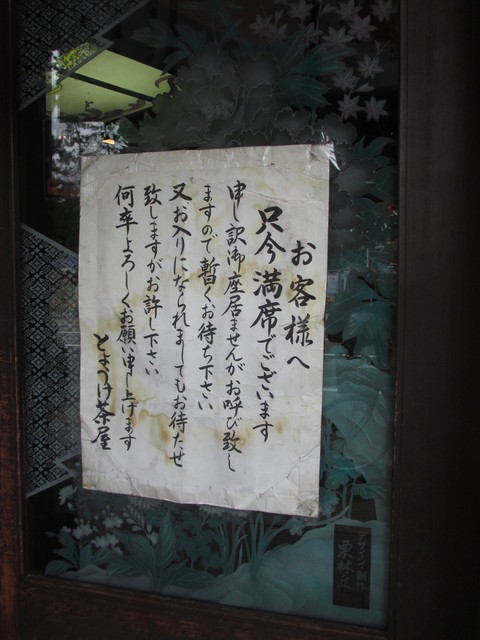 お客様へ
只今満席でございます
申し訳御座居ませんがお呼び致し
ますので暫くお待ち下さい
又お入りになられましてもお待たせ
致しますがお許し下さい
何卒よろしくお願い申し上げます
とようけ茶屋
デザイン制作